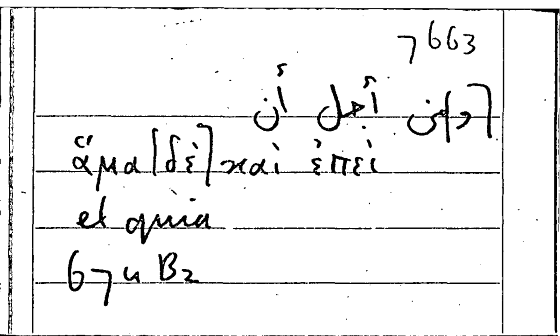 7663
[و]من أجل أن
ἅμα [δὲ] καὶ ἐπεὶ
et quia
67u B2